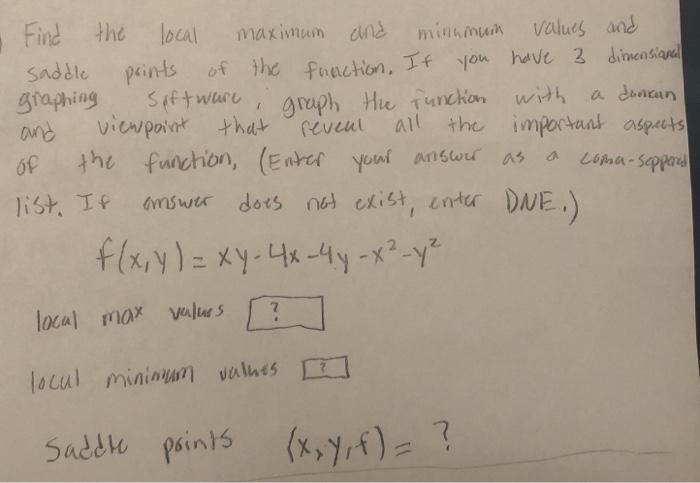 Find the local maximum and minimum values and
saddle points of the function. If you have 3 dimensional
graphing software, graph the function with a domain
and viewpoint that reveal all the important aspects
of the function, (Enter your answer as a coma-sepperated
list. If answer does not exist, enter DNE.)
f(x,y) = xy-4x-4y-x²-y²
local max values ?
local minimum values ?
Saddle points (x,y,f) = ?